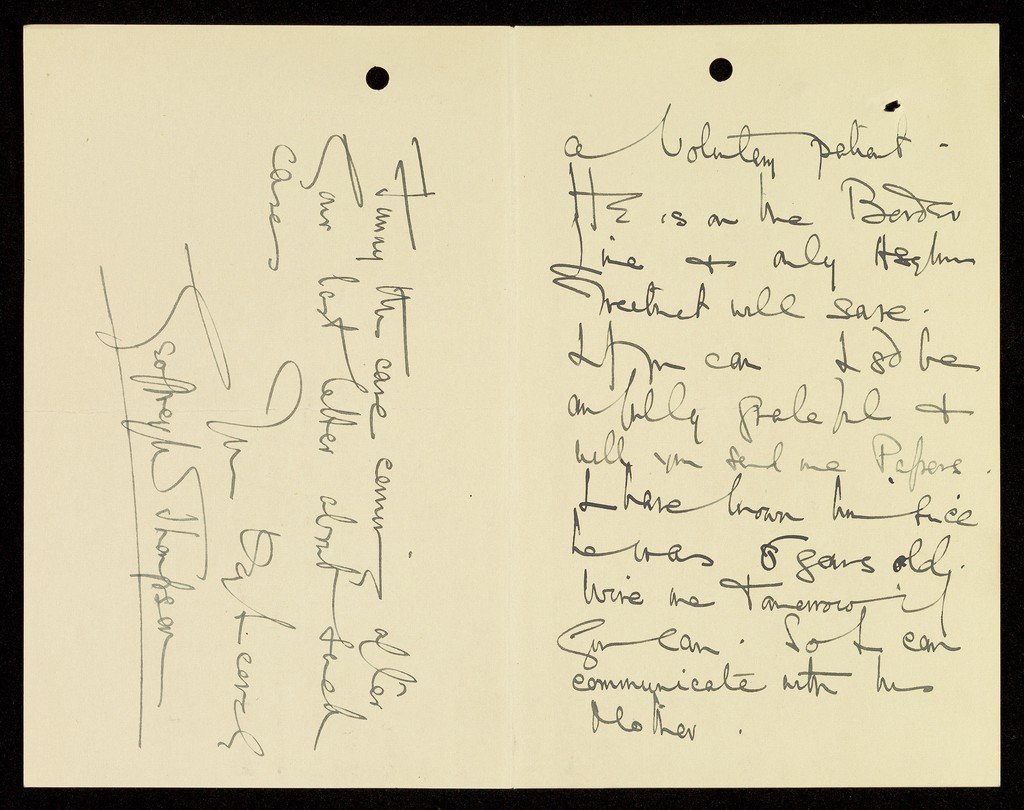 a Voluntary patient -
HE is on the Border
Line & only Asylum
Treatment will save.
If you can I sd be
awfully grateful &
will you send me Papers.
I have known him since
he was 5 years old.
Wire me tomorrow if
you can. So I can
communicate with his
Mother.
Funny this case coming after
your last letter about such
cases
Yrs
Geoffrey W Thompson